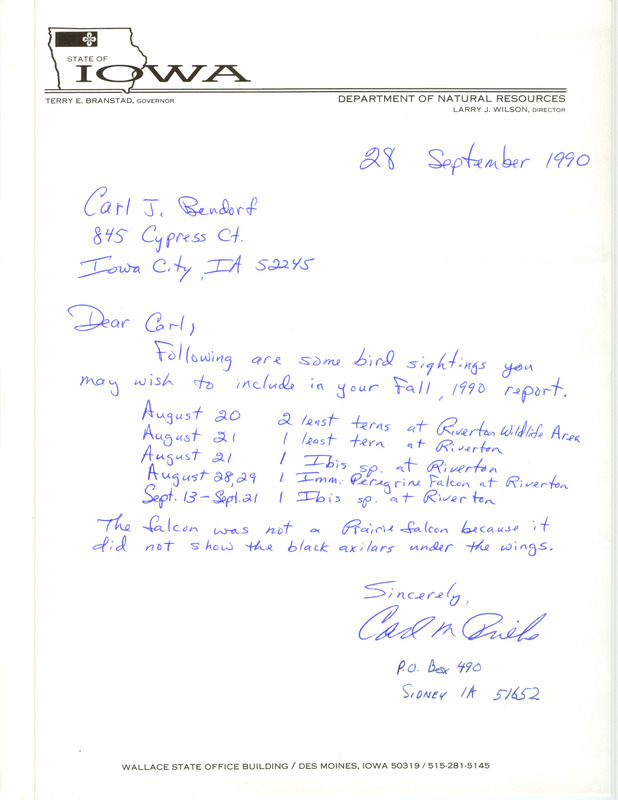 STATE OF
IOWA
TERRY E. BRANSTAD, GOVERNOR
DEPARTMENT OF NATURAL RESOURCES
LARRY J. WILSON, DIRECTOR
28 September 1990
Carl J. Bendorf
845 Cypress Ct.
Iowa City, IA 52245
Dear Carl,
Following are some bird sightings you
may wish to include in your Fall, 1990 report.
August 20 2 least terns at Riverton Wildlife Area
August 21 1 least tern at Riverton
August 21 1 Ibis sp. at Riverton
August 28,29 1 Imm. Peregrine Falcon at Riverton
Sept. 13-Sept. 21 1 Ibis sp. at Riverton
The falcon was not a Prairie falcon because it
did not show the black axilars under the wings.
Sincerely,
Carl M
P.O. Box 490
SIDNEY IA 51652
WALLACE STATE OFFICE BUILDING / DES MOINES, IOWA 50319 / 515-281-5145